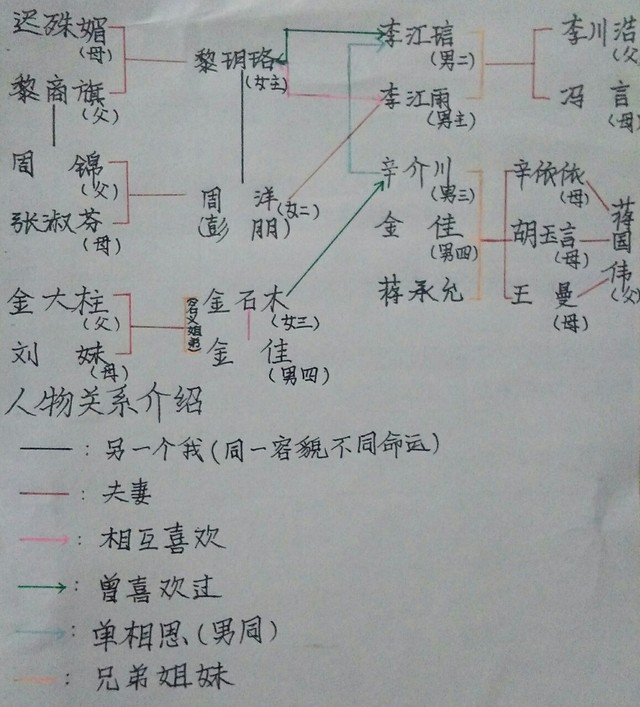 迟殊媚 李江瑄 李川浩
(母) 黎玥珞 (男二) (父)
黎商旗 (女主) 李江雨 冯 言
(父) (男主) (母)
周 锦 辛介川 辛依依
(父) 周 洋 (男三) (母) 蒋
张淑芬 (女二) 金 佳 胡玉言 国
(母) (彭 朋) (男四) (母) 伟
金大柱 (名义姐弟) 金石木 蒋承允 王 曼 (父)
(父) (女三) (母)
刘 妹 金 佳
(母) (男四)
人物关系介绍
:另一个我(同一容貌不同命运)
:夫妻
:相互喜欢
:曾喜欢过
:单相思(男同)
:兄弟姐妹